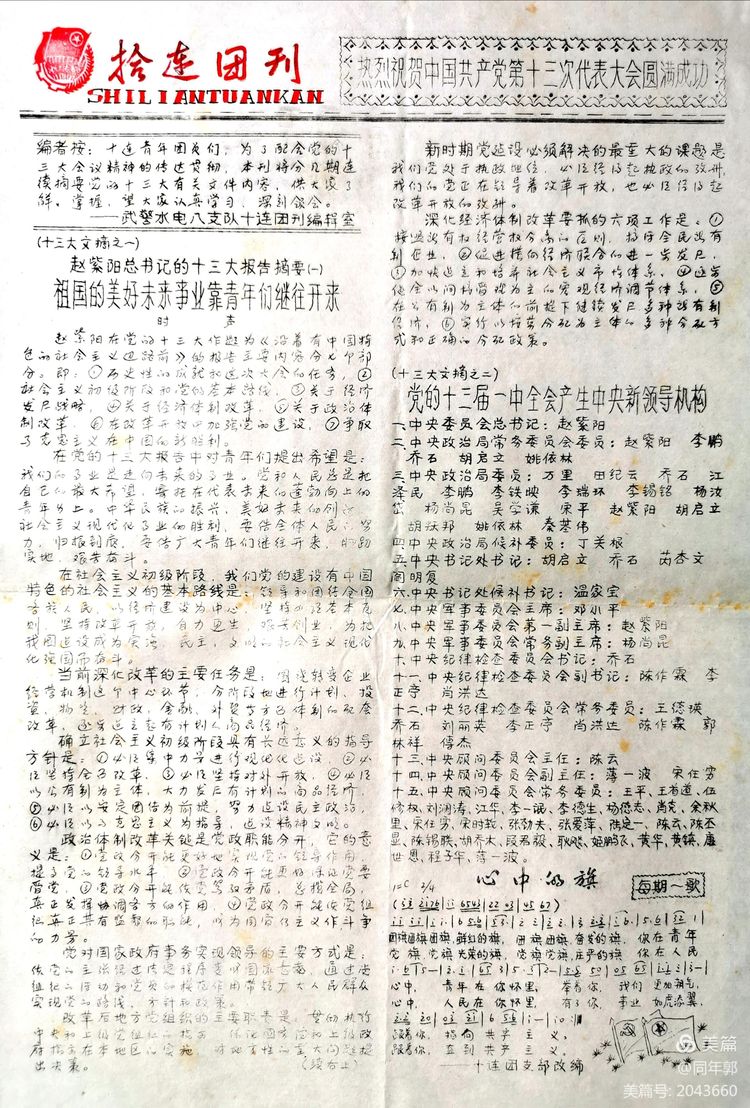 拾连团刊
SHILIANTUANKAN
热烈祝贺中国共产党第十三次代表大会圆满成功
编者按：十连青年团员们，为了配合党的十
三大会议精神的传达贯彻，本刊将分几期连
续摘要党的十三大有关文件内容，供大家了
解，掌握，望大家认真学习，深刻领会。
——武警水电八支队十连团刊编辑室
(十三大文摘之一)
赵紫阳总书记的十三大报告摘要(一)
祖国的美好未来事业靠青年们继往开来
时 声
赵紫阳在党的十三大作题为《沿着有中国特
色的社会主义道路前》的报告主要内容分义个部
分。即：①历史性的成就和这次大会的任务，②
社会主义初级阶段和党的基本路线，③关于经济
发尸战略，④关于经济体制改革，⑤关于政治体
制改革，⑥在改革开放中加强党的建设，⑦争取
了克思主义在中国的新胜利。
在党的十三大报告中对青年们提出希望是：
我们的事业是走向未来的事业。党和人民总是把
自己的最大希望，寄托在代表未来的蓬勃向上的
青年身上。中华民族的振兴，美好未来的创造
社会主义现代化事业的胜利，要靠全体人民的努
力，归根到底，要靠广大青年们继往开来，
实地，艰苦奋斗。
在社会主义初级阶段，我们党的建设有中国
特色的社会主义的基本路线是：领导和团结全国
各族人民，以经济建设为中心，坚持四项基本原
则，坚持改革开放，自力更生，艰苦创业，为把
我国建设成为富强，民主，文明的社会主义现代
化强国而奋斗。
当前深化改革的主要任务是：围绕转变企业
经营机制这个中心环节，分阶段地进行计划，投
资，物资，财政，金融，外贸等方面体制的配套
改革，逐步建立起有计划人商品经济。
确立社会主义初级阶段具有长远意义的指导
方针是：①必须集中力量进行现代化建设 ②必
须坚持全面改革，③必须坚持对外开放，④必须
以公有制为主体，大力发尸有计划的商品经济，
⑤必须以安定团结为前提，努力建设民主政治。
⑥必须以马克思主义为指导，建设精神文明。
政治体制改革关键是党政职能分开，它的意
义是：①党政分开能更好地实现党的领导作用，
提了党的领导水平 ②党政分开能更的保证党要
管党，③党政分开能使党驾驭矛盾，总揽全局，
真正发挥协调各方的作用，④党政分开能使党组
织真正具有监督的职能，成为同官僚主义作斗争
的力量。
党对国家政府事务实现领导的主要方式是：
使党的主张经过法定程序变成国家意志，通过党
组织的活动和党员的模范作用带领广大人民群众
实现党的路线，方针和政策。
改革后地方党组织的主要职责是：贯彻执行
中央和上级党组织的指示 保证国务院和上级政
府指令在本地区的实施 对地方性的重大问题提
出决策。 (续右上)
新时期党建设必须解决的最至大的课题是
我们党处于执政地位，必须经得起执政的考验，
我们的党正在领导着改革开放，也必须经得起
改革开放的考验。
深化经济体制改革要抓的六项工作是：①
按照所有权经营权分离的原则，搞活全民所有
制企业，②促进横向经济联合的进一步发尸，
③加快建立和培养社会主义市场体系，④逐步
健全以间接管理为主的宏观经济调节体系，⑤
在公有制为主体的前提下继续发尸多种所有制
经济，⑥实行以按劳分配为主体的多种分配方
式和正确的分配政策。
(十三大文摘之二)
党的十三届一中全会产生中央新领导机构
一、中央委员会总书记：赵紫阳
二、中央政治局常务委员会委员：赵紫阳 李鹏
乔石 胡启立 姚依林
三、中央政治局委员：万里 田纪云 乔石 江
泽民 李鹏 李铁映 李瑞环 李锡铭 杨汝
岱 杨尚昆 吴学谦 宋平 赵紫阳 胡启立
胡耀邦 姚依林 秦基伟
四、中央政治局候补委员：丁关根
五、中央书记处书记：胡启立 乔石 芮杏文
阎明复
六、中央书记处候补书记：温家宝
七、中央军事委员会主席：邓小平
八、中央军事委员会第一副主席：赵紫阳
九、中央军事委员会常务副主席：杨尚昆
十、中央纪律检查委员会书记：乔石
十一、中央纪律检查委员会副书记：陈作霖 李
正亭 尚洪达
十二、中央纪律检查委员会常务委员：王德瑛
乔石 刘丽英 李正亭 尚洪达 陈作霖 郭
林祥 傅杰
十三、中央顾问委员会主任：陈云
十四、中央顾问委员会副主任：薄一波 宋任穷
十五、中央顾问委员会常务委员：王平、王首道、伍
修权、刘澜涛、江华、李一氓、李德生、杨德志、肖克、余秋
里、宋任穷、宋时轮、张劲夫、张爱萍、陆定一、陈云、陈丕
显、陈锡联、胡乔木、段君毅、耿飚、姬鹏飞、黄华、黄镇、康
世恩、程子华、薄一波。
心中的旗
每期一歌
1=C 2/4
团旗团旗团旗，鲜红的旗，团旗团旗，奋发的旗，你在青年
党旗，党旗，光荣的旗，党旗党旗，庄严的旗 你在人民
心中， 青年在你怀里， 举着你， 我们更加朝气，
心中， 人民在你怀里， 有了你， 事业如虎添翼，
跟着你，指向共产主义，
跟着你，直到共产主义，
——十连团支部改编
美篇
@同年郭
美篇号: 2043660